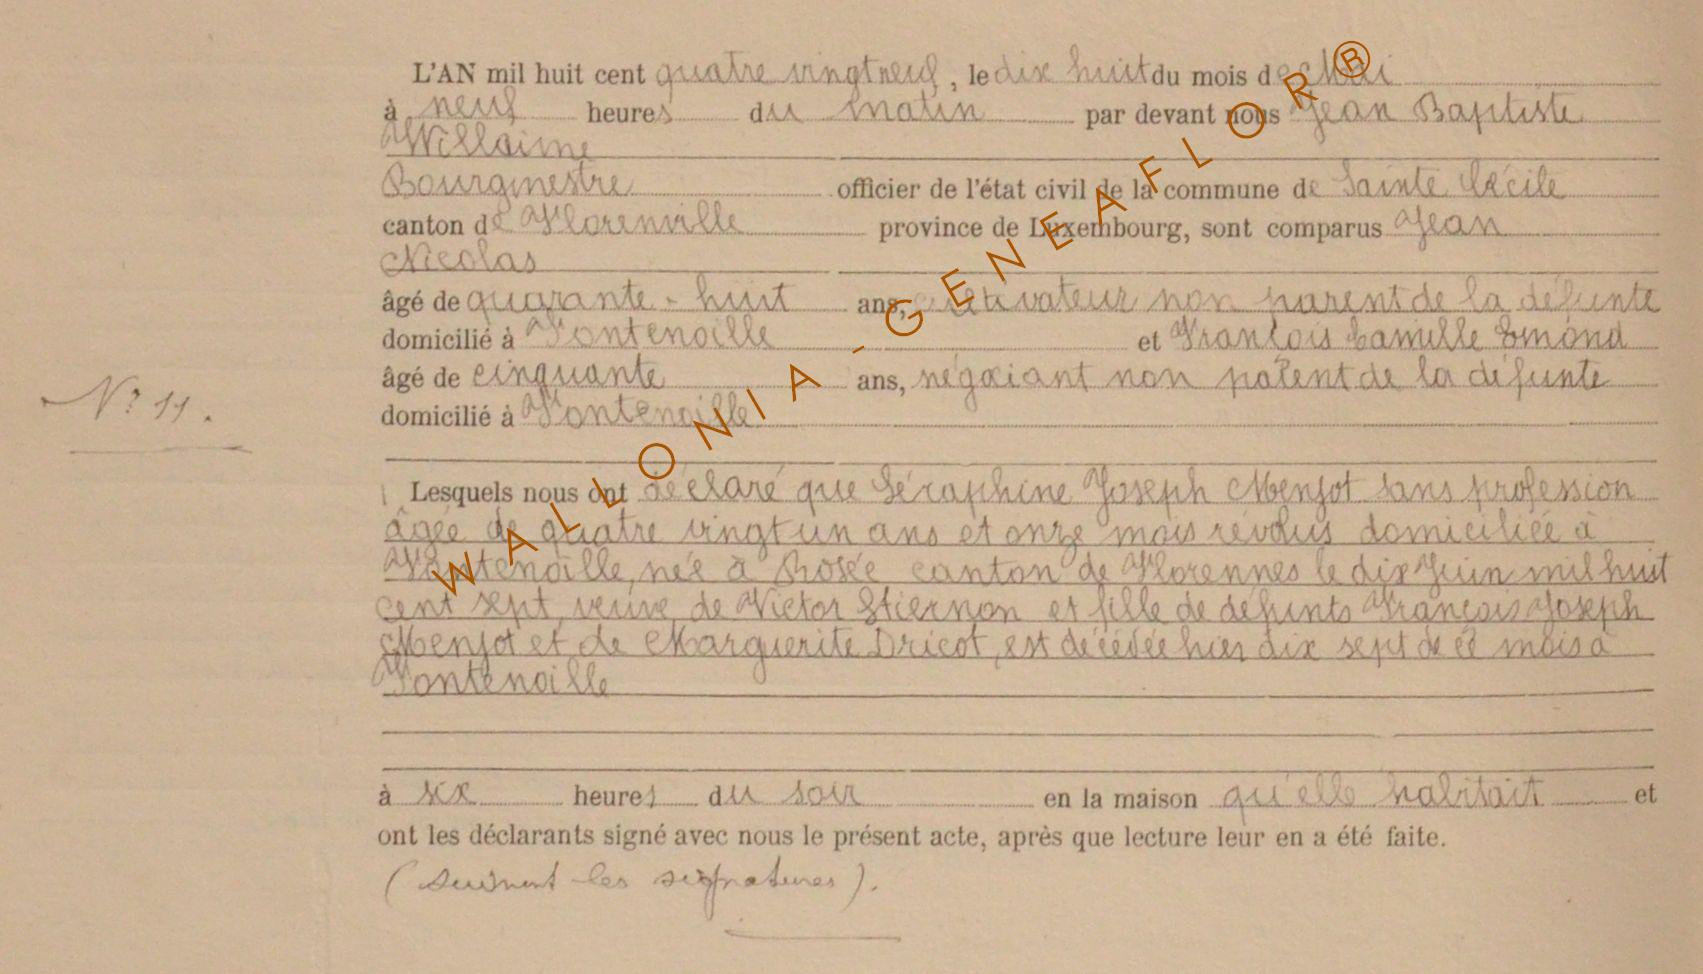 L'AN mil huit cent quatre vingt neuf, le dix huit du mois de Mai
à neuf heures du matin par devant nous Jean Baptiste
Willaime
Bourgmestre officier de l'état civil de la commune de Sainte Cécile
canton de Florenville province de Luxembourg, sont comparus Jean
Nicolas
âgé de quarante-huit ans, cultivateur non parent de la défunte
domicilié à Fontenoille et François Camille Emond
âgé de cinquante ans, négociant non parent de la défunte
N° 11.
domicilié à Fontenoille
Lesquels nous ont déclaré que Séraphine Joseph Menjot sans profession
âgée de quatre vingt un ans et onze mois révolus domiciliée à
Fontenoille, née à Rosée canton de Florennes le dix Juin mil huit
cent sept, veuve de Victor Stiernon et fille de défunts François Joseph
Menjot et de Marguerite Dricot, est décédée hier dix sept de ce mois à
Fontenoille
à six heures du soir en la maison qu'elle habitait et
ont les déclarants signé avec nous le présent acte, après que lecture leur en a été faite.
(suivent les signatures).
WALLONIA - GENEAFLOR®